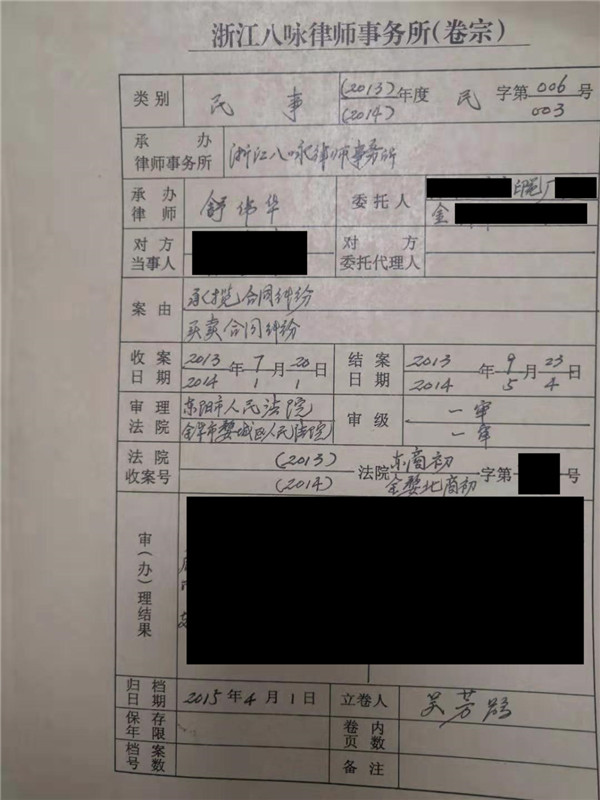 浙江八咏律师事务所(卷宗)
类别 民事 (2013) 年度 民 字第 006 号
(2014) 003
承办律师事务所 浙江八咏律师事务所
承办律师 舒伟华 委托人 印
金
对方当事人 对方委托代理人
案由 承揽合同纠纷
买卖合同纠纷
收案日期 2013年7月20日 结案日期 2013年9月23日
2014 1 1 2014 5 4
审理法院 东阳市人民法院 审级 一审
金华市婺城区人民法院 一审
法院收案号 (2013) 法院 东商初 字第 号
(2014) 金婺北商初
审(办)理结果
归档日期 2015年4月1日 立卷人 吴芳
保存年限 卷内页数
档案号数 备注